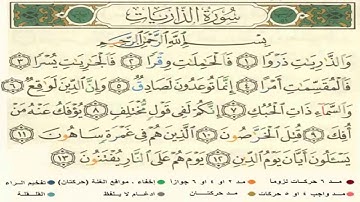 سُورَةُ الذَّارِيَاتِ
بِسْمِ اللَّهِ الرَّحْمَٰنِ الرَّحِيمِ
وَالذَّارِيَاتِ ذَرْوًا ﴿١﴾ فَالْحَامِلَاتِ وِقْرًا ﴿٢﴾ فَالْجَارِيَاتِ يُسْرًا ﴿٣﴾
فَالْمُقَسِّمَاتِ أَمْرًا ﴿٤﴾ إِنَّمَا تُوعَدُونَ لَصَادِقٌ ﴿٥﴾ وَإِنَّ الدِّينَ لَوَاقِعٌ ﴿٦﴾
وَالسَّمَاءِ ذَاتِ الْحُبُكِ ﴿٧﴾ إِنَّكُمْ لَفِي قَوْلٍ مُّخْتَلِفٍ ﴿٨﴾ يُؤْفَكُ عَنْهُ مَنْ
أُفِكَ ﴿٩﴾ قُتِلَ الْخَرَّاصُونَ ﴿١٠﴾ الَّذِينَ هُمْ فِي غَمْرَةٍ سَاهُونَ ﴿١١﴾
يَسْأَلُونَ أَيَّانَ يَوْمُ الدِّينِ ﴿١٢﴾ يَوْمَ هُمْ عَلَى النَّارِ يُفْتَنُونَ ﴿١٣﴾
مد ٦ حركات لزوما مد ٢ او ٤ او ٦ جوازا إخفاء، ومواقع الغنة (حركتان) تفخيم الراء
مد واجب ٤ او ٥ حركات مد حركتان ادغام، وما لا يلفظ قلقلة